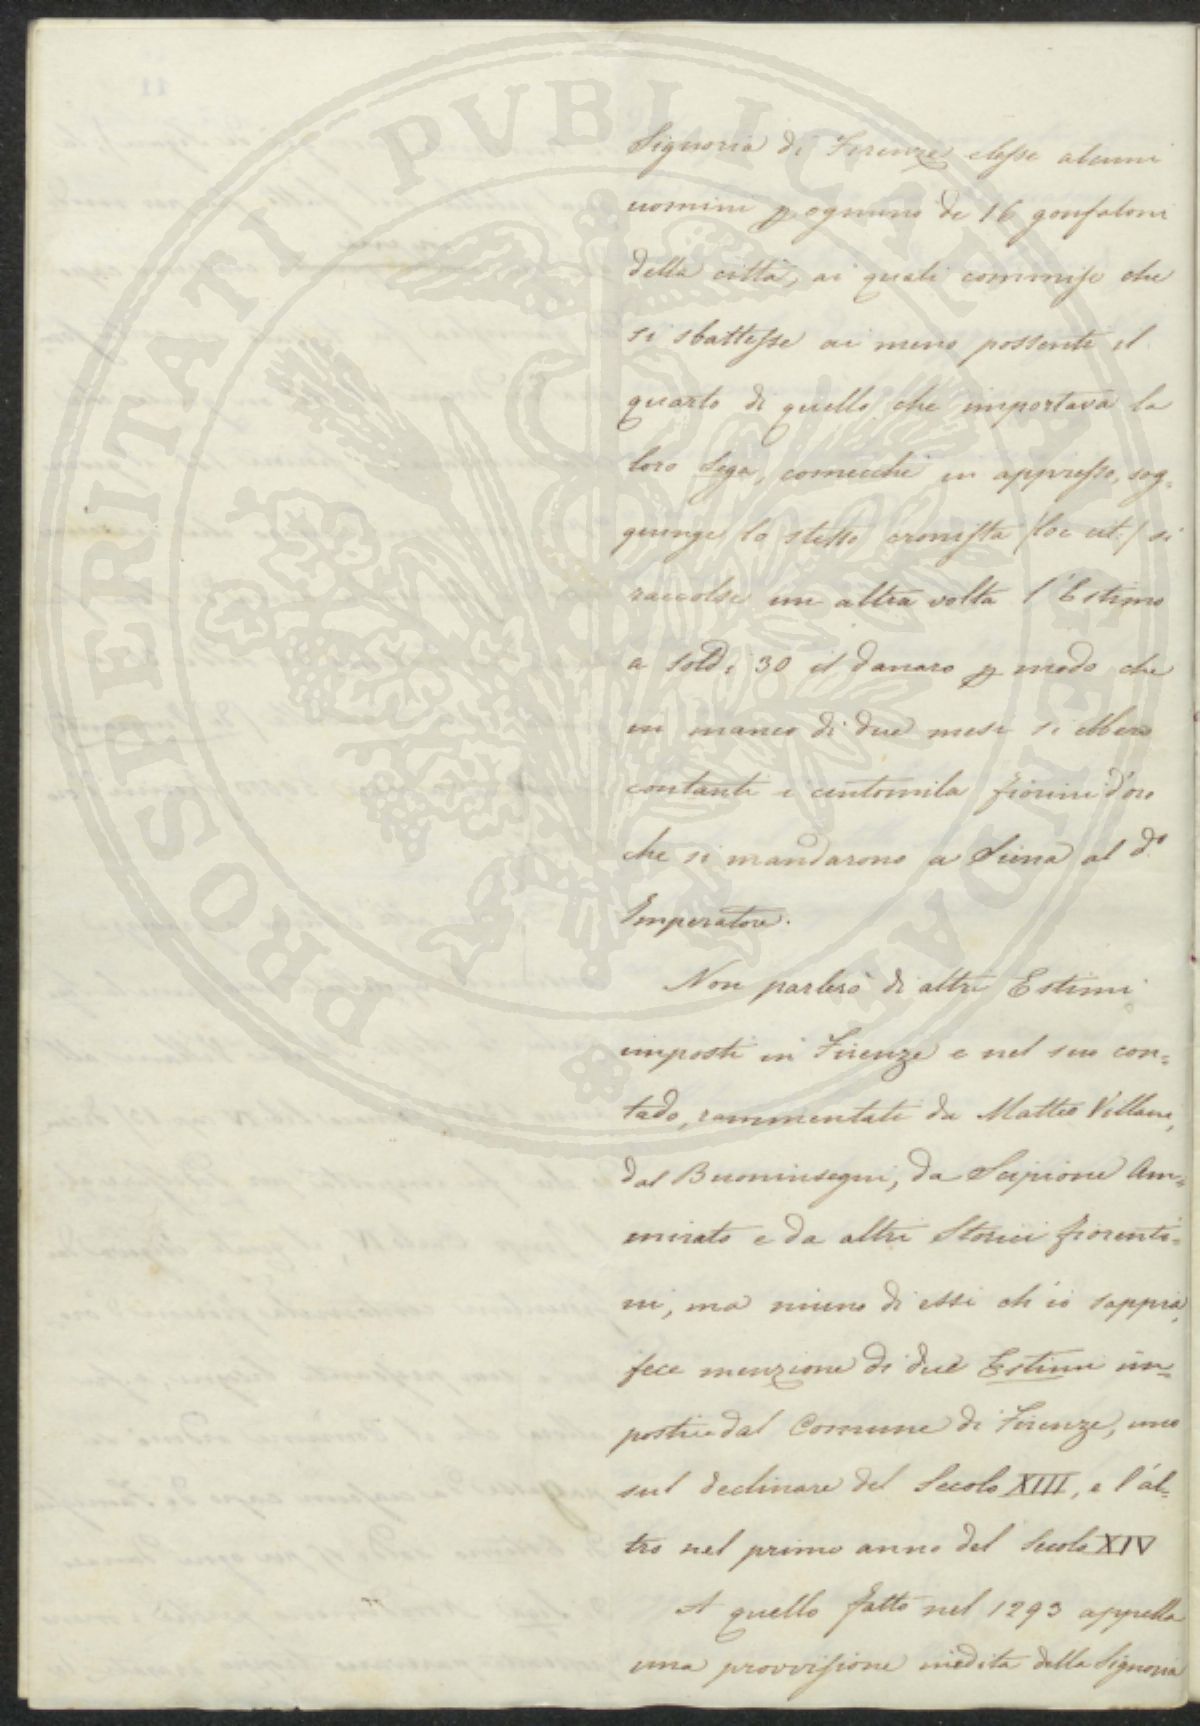 Signoria di Firenze elesse alcuni
uomini p ognuno de 16 gonfaloni
della città, ai quali commise che
si sbattesse ai meno possenti il
quarto di quello che importava la
loro Sega, comecchè in appresso, sog-
giunge lo stesso cronista /loc cit:/ si
raccolse un altra volta l'Estimo
a soldi 30 il danaro p modo che
in manco di due mesi si ebbero
contanti i centomila fiorini d'oro
che si mandarono a Siena al do
Imperatore.
Non parlerò di altri Estimi
imposti in Firenze e nel suo con=
tado, rammentati da Matteo Villani,
dal Buoninsegni, da Scipione Am=
mirato e da altri Storici fiorenti=
ni, ma niuno di essi ch'io sappia,
fece menzione di due Estimi im=
posti dal Comune di Firenze, uno
sul declinare del Secolo XIII, e l'al=
tro nel primo anno del Secolo XIV
A quello fatto nel 1293 appella
una provvisione inedita della Signoria
PROSPERITATI PVBLICAE